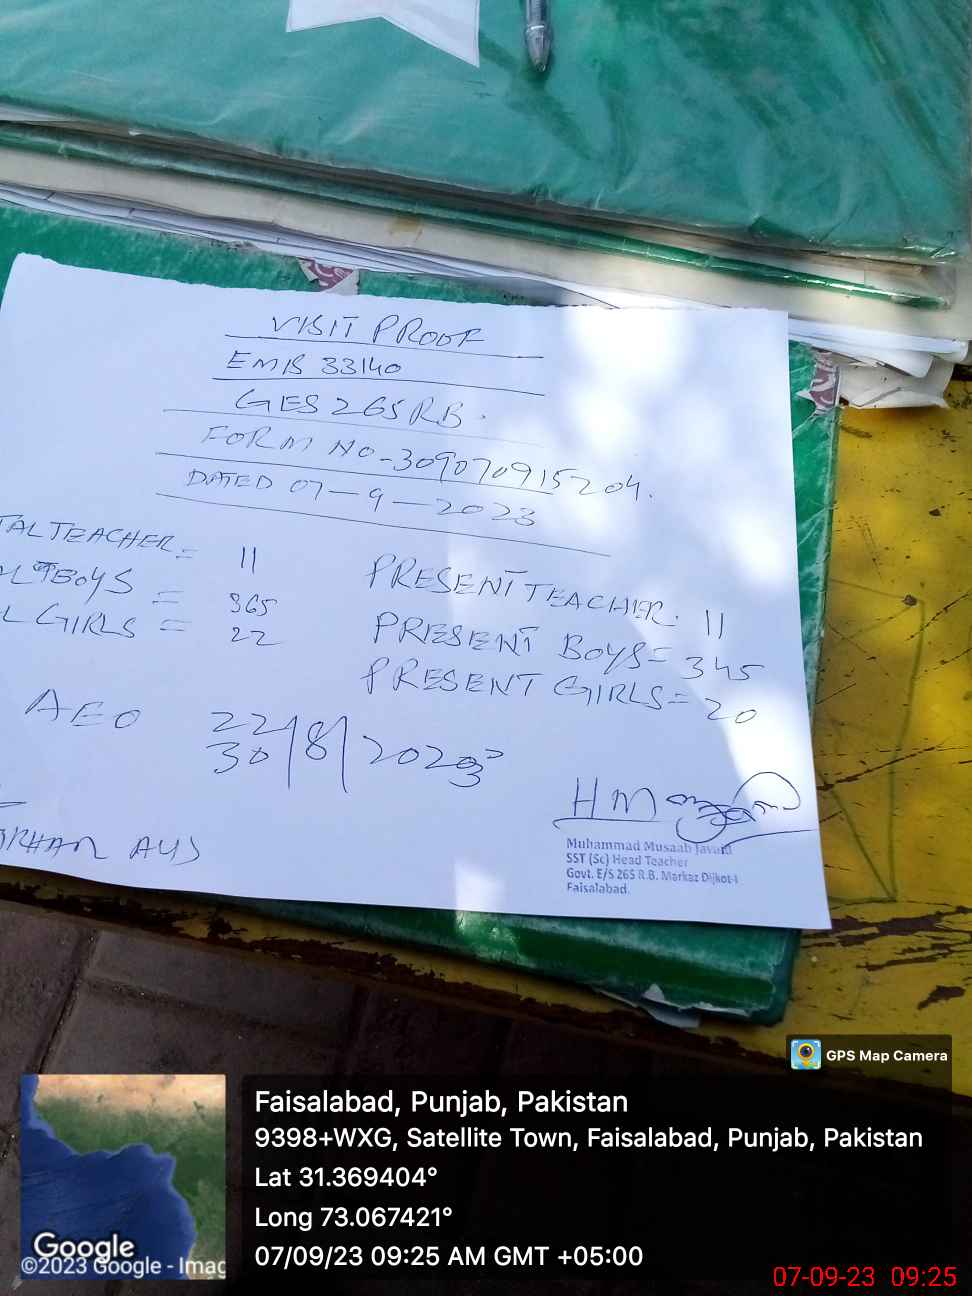 VISIT PROOF
EMIS 33140
GES 265 RB.
FORM NO-309070915204.
DATED 07-9-2023
TAL TEACHER = 11
BOYS = 365
L GIRLS = 22
PRESENT TEACHER. 11
PRESENT BOYS = 345
PRESENT GIRLS = 20
AEO 22
30/8/2023
HM
Muhammad Musaab Javaid
SST (Sc) Head Teacher
Govt. E/S 265 R.B. Markaz Dijkot-I
Faisalabad.
GPS Map Camera
Faisalabad, Punjab, Pakistan
9398+WXG, Satellite Town, Faisalabad, Punjab, Pakistan
Lat 31.369404°
Long 73.067421°
07/09/23 09:25 AM GMT +05:00
Google
©2023 Google - Imag
07-09-23 09:25